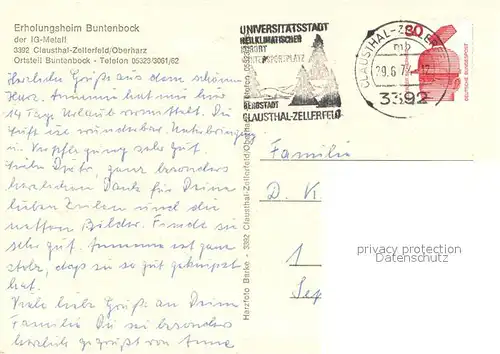 Erholungsheim Buntenbock
der IG-Metall
3392 Clausthal-Zellerfeld/Oberharz
Ortsteil Buntenbock - Telefon 05323/3061/62
Herzliche Grüße aus dem schönen
Harz. haben wir hier
14 Tage Urlaub vermittelt. Die
Luft ist wunderbar. Unterbringung
u. Verpflegung sehr gut.
Liebe ganz besonders
herzlichen Dank für Deine
lieben Zeilen und die
netten Bilder. Finde sie
sehr gut. ist ganz
stolz, daß sie so gut geknipst
hat.
Viele liebe Grüße an Deine
Familie Du sei besonders
herzlich gegrüßt von Anne
UNIVERSITÄTSSTADT
HEILKLIMATISCHER
KURORT
WINTERSPORTPLATZ
BERGSTADT
CLAUSTHAL-ZELLERFELD
CLAUSTHAL-ZELLERF
mb
29.6.7
3392
30
DEUTSCHE BUNDESPOST
Harzfoto Barke - 3392 Clausthal-Zellerfeld/Oberharz
Familie
D. K
1
privacy protection
Datenschutz